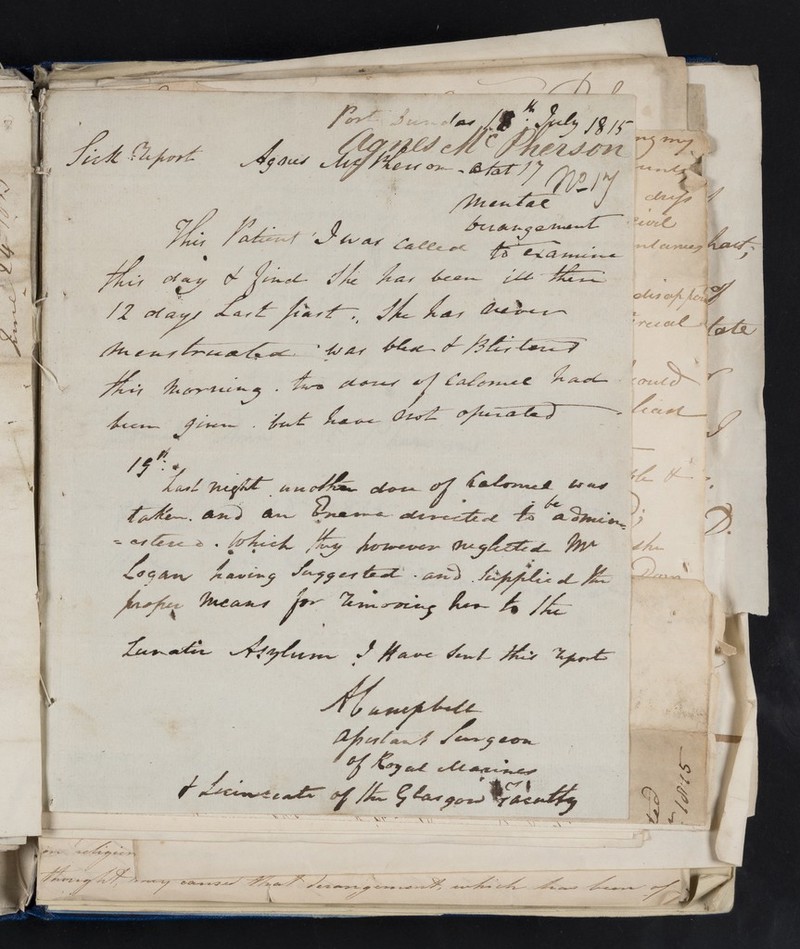 Port Dundas 18th July 1815
Agnes Mc Pherson
Sick Report Agnes McPherson - Ætat 17
No 17
mental
Derangement
This Patient I was called to examine
this day & find She has been ill these
12 days Last past. She has never
menstruated was bled & Blistered
this morning. two doses of Calomel had
been given. but have not operated
19th.
Last night another dose of Calomel was
taken. and an Enema directed to be admin
=istered. Which they however neglected Mr
Logan having Suggested. and Supplied the
proper means for removing her to the
Lunatic Asylum I Have Sent this report
A Campbell
Assistant Surgeon
of Royal Marines
& Licenciate of the Glasgow Faculty
dress
civil
hart;
of
late
could
I
D.
she
1815
religion
thought, may caused that derangement, which has been of